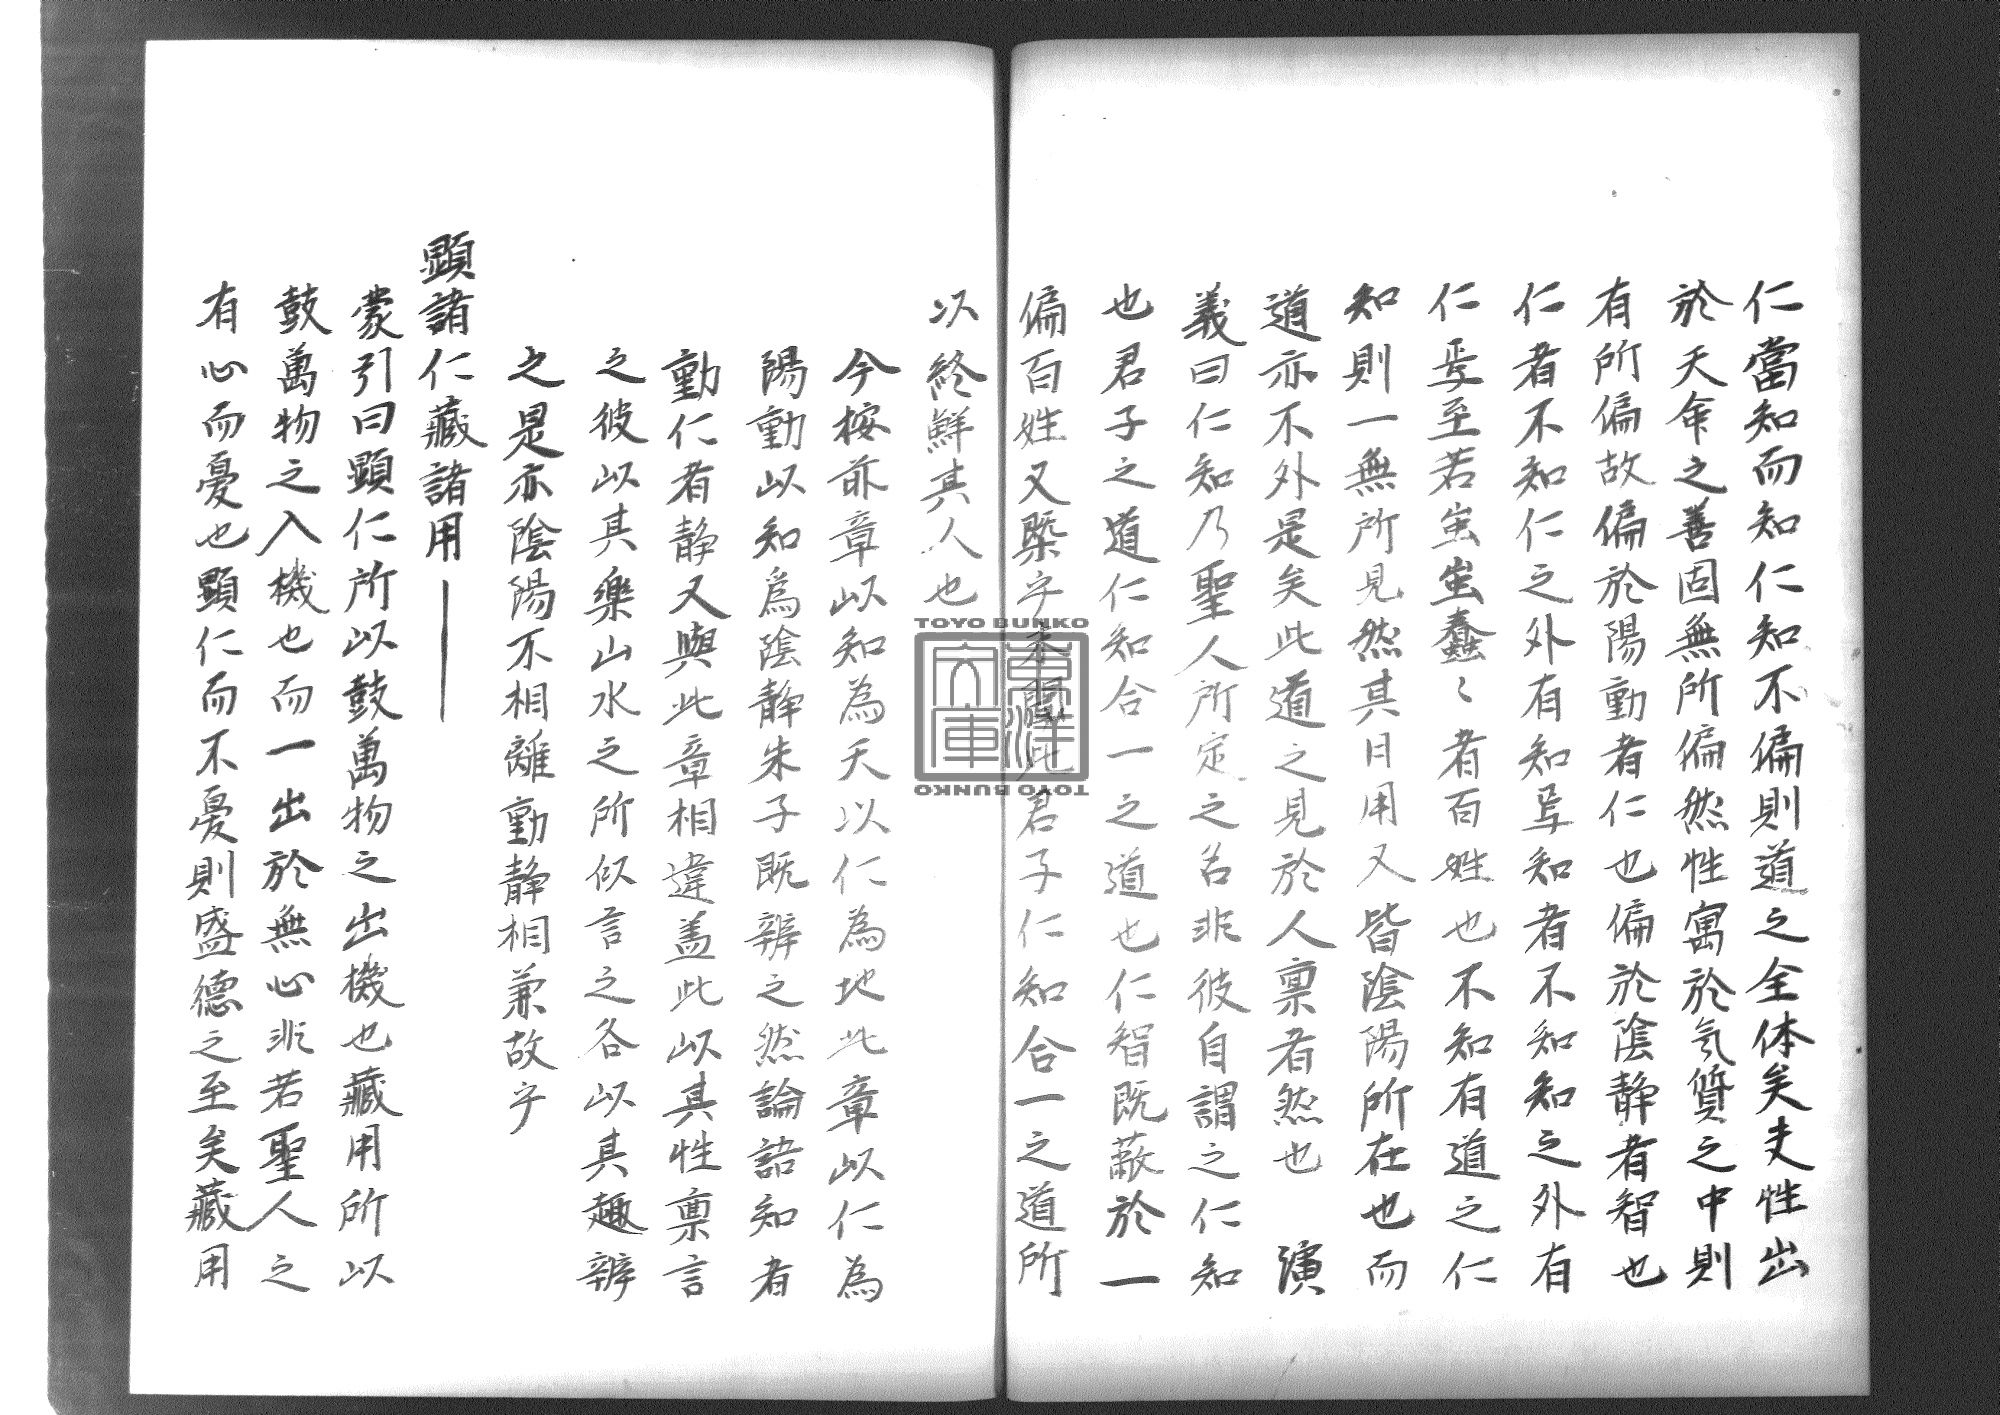 仁當知而知仁知不偏則道之全体矣夫性出
於天命之善固無所偏然性寓於気質之中則
有所偏故偏於陽動者仁也偏於陰静者智也
仁者不知仁之外有知焉知者不知知之外有
仁焉至若蚩蚩蠢〻者百姓也不知有道之仁
知則一無所見然其日用又皆陰陽所在也而
道亦不外是矣此道之見於人稟者然也　演
義曰仁知乃聖人所定之名非彼自謂之仁知
也君子之道仁知合一之道也仁智既蔽於一
偏百姓又槩乎未聞此君子仁知合一之道所
以終鮮其人也
今按前章以知為天以仁為地此章以仁為
陽動以知為陰静朱子既辨之然論語知者
動仁者静又與此章相違盖此以其性稟言
之彼以其樂山水之所似言之各以其趣辨
之是亦陰陽不相離動静相兼故乎
顕諸仁藏諸用——
蒙引曰顕仁所以鼓萬物之出機也藏用所以
鼓萬物之入機也而一出於無心非若聖人之
有心而憂也顕仁而不憂則盛德之至矣藏用
TOYO BUNKO
東洋文庫
TOYO BUNKO